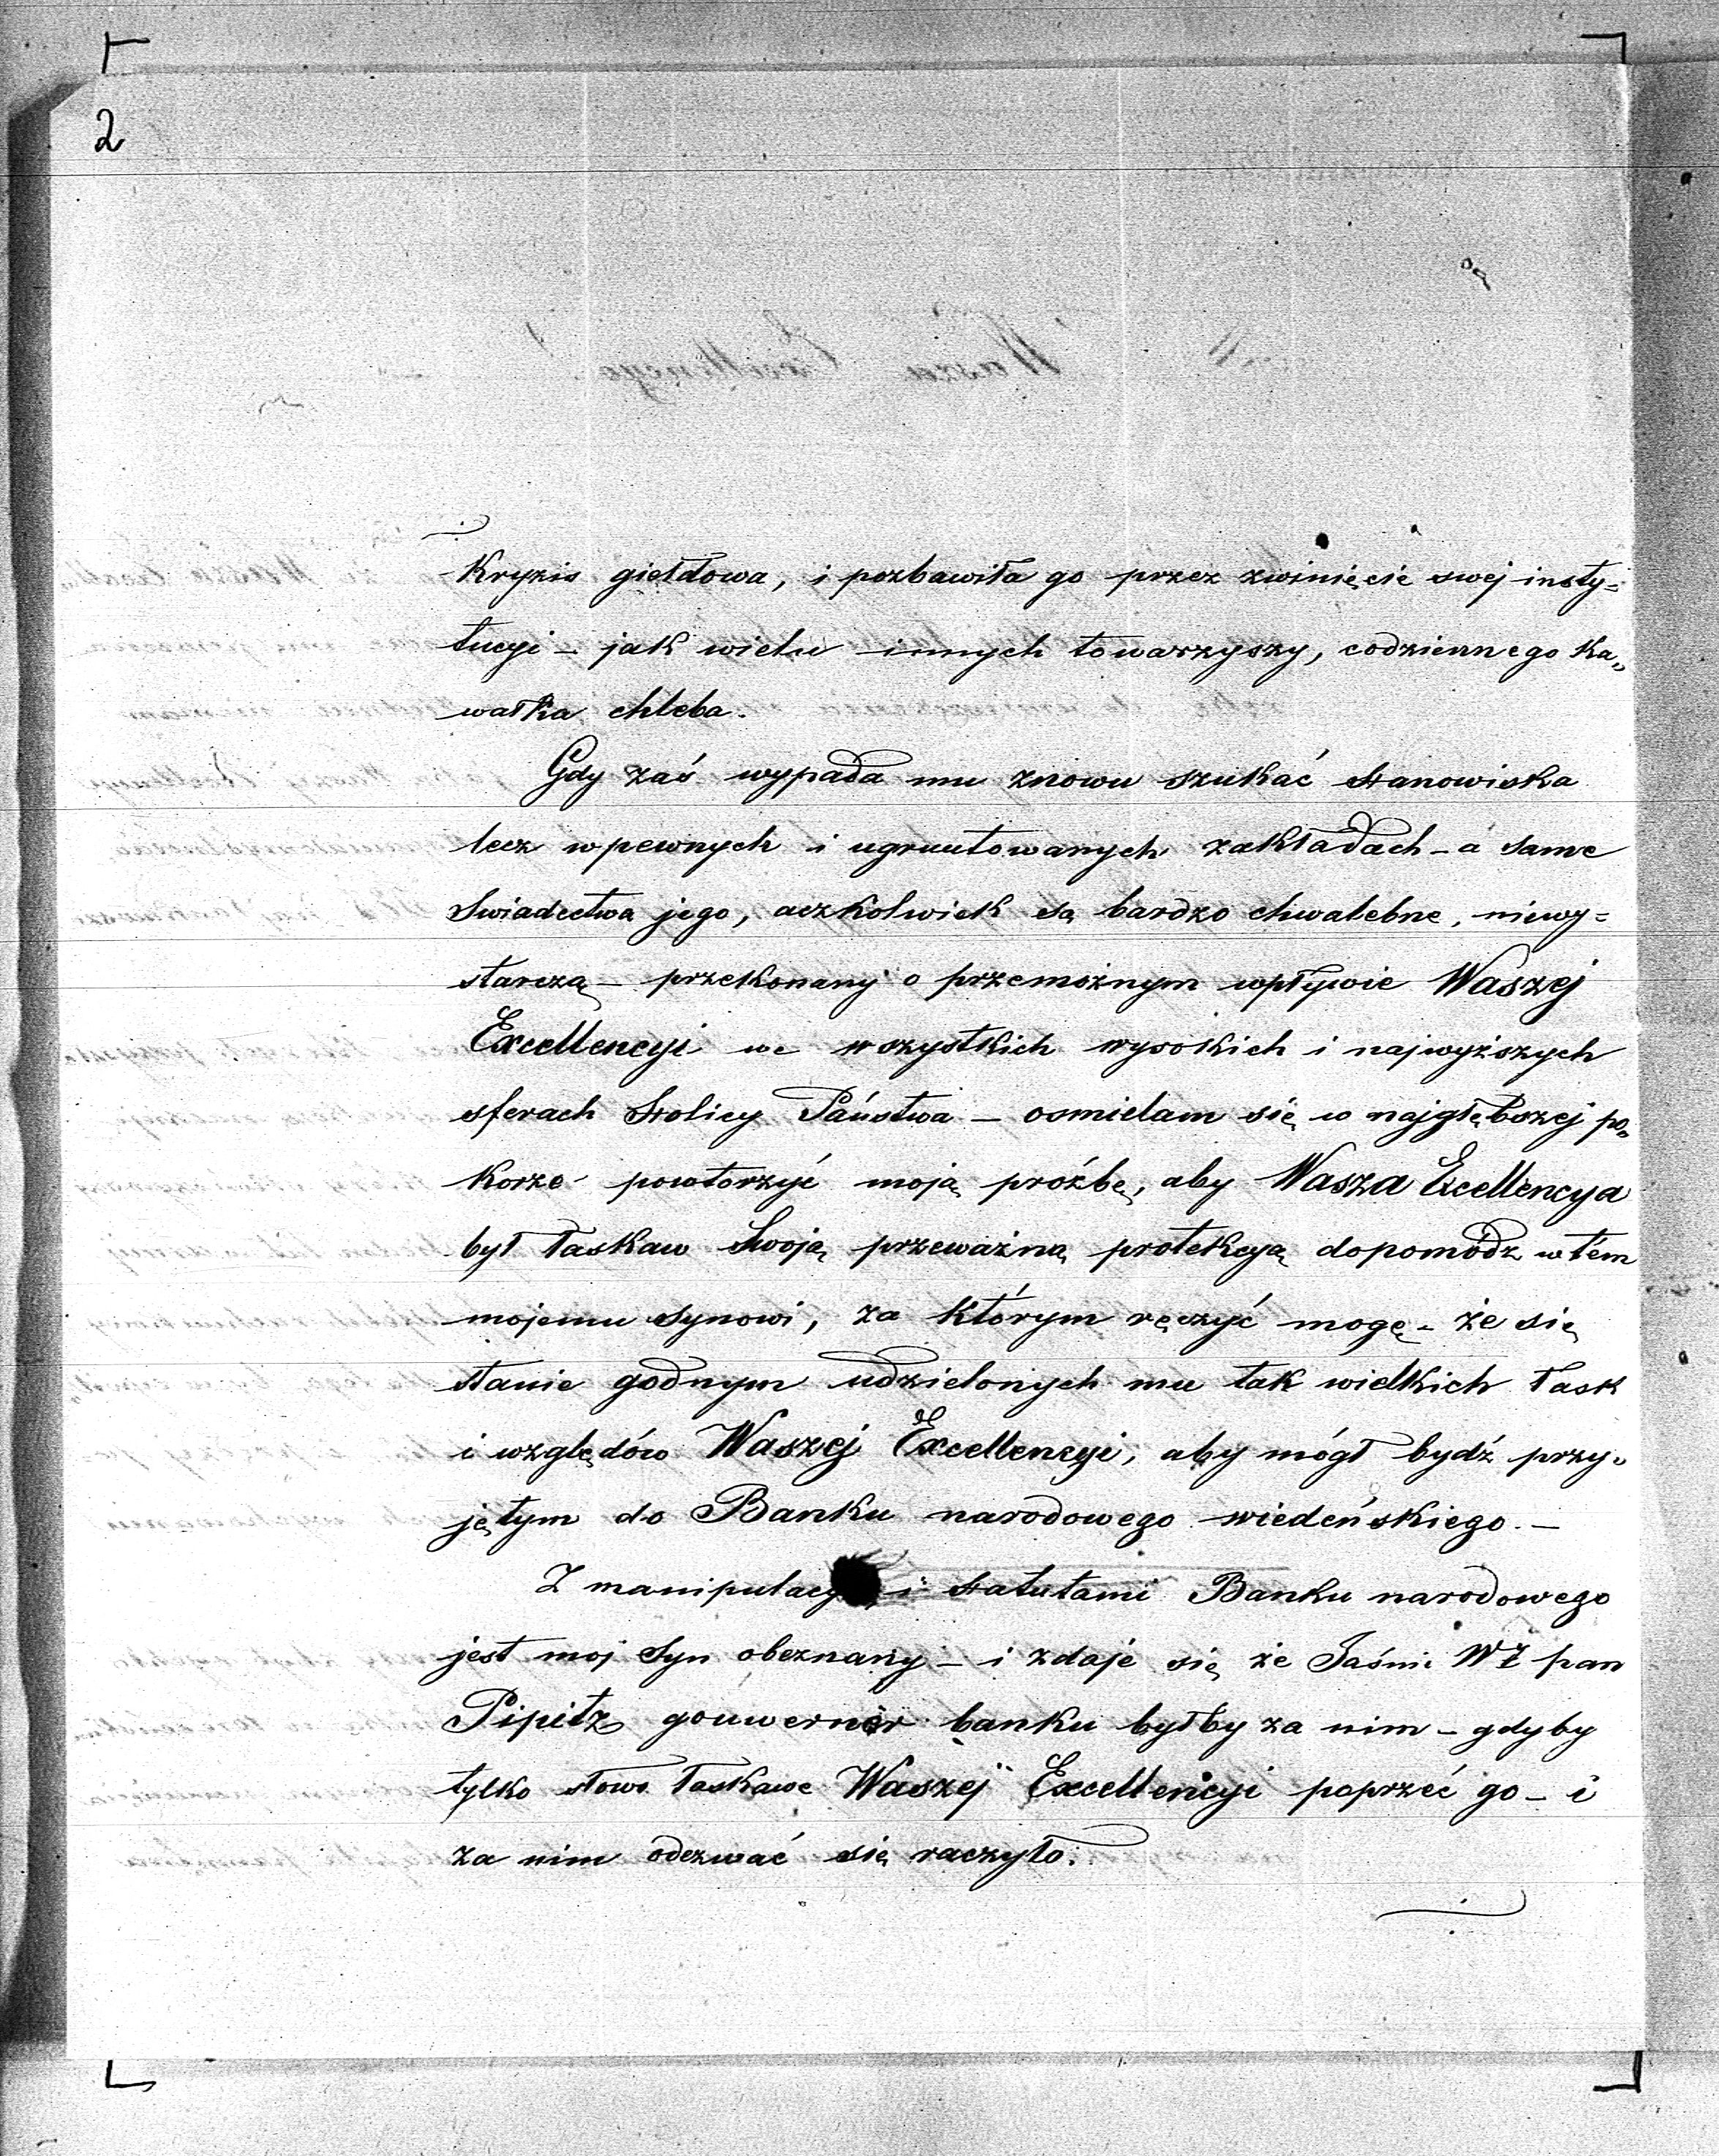 2
Kryzis giełdowa, i pozbawiła go przez zwinięcie swej insty=
tucyi – jak wielu innych towarzyszy, codziennego ka„
wałka chleba.
Gdy zaś wypada mu znowu szukać stanowiska
lecz w pewnych i ugruntowanych zakładach – a same
Swiadectwa jego, aczkolwiek są bardzo chwalebne, niewy=
starczą – przekonany o przemożnym wpływie Waszej
Excellencyi we wszystkich wysokich i najwyższych
sferach Stolicy Państwa – osmielam się w najgłębszej po„
korze powtorzyć moją próźbę, aby Wasza Excellencya
był łaskaw Swoją przeważną protekcyą dopomódz w tém
mojemu synowi, za którym ręczyć mogę – że się
stanie godnym udzielonych mu tak wielkich łask
i względów Waszej Excellencyi, aby mógł bydź przy„
jętym do Banku narodowego wiedeńskiego. –
Z manipulacyą i statutami Banku narodowego
jest moj Syn obeznany – i zdaje się że Jaśni WŻ pan
Pipitz gouvernér banku byłby za nim – gdyby
tylko słowo łaskawe Waszej Excellencyi poprzeć go – i
za nim odezwać się raczyło.